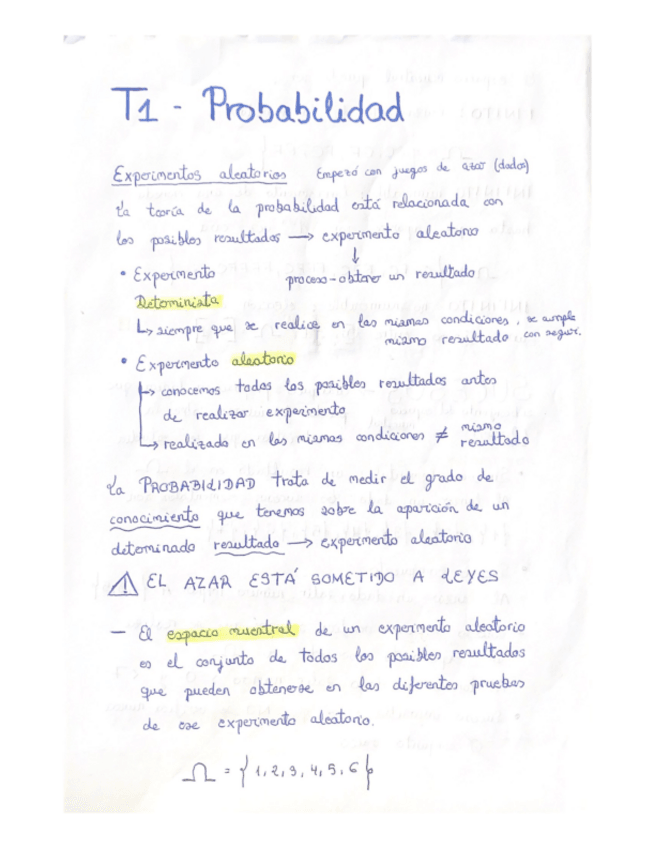 T1 - Probabilidad
Experimentos aleatorios Empezó con juegos de azar (dados)
La teoría de la probabilidad está relacionada con
los posibles resultados → experimento aleatorio
↓
• Experimento proceso - obtener un resultado
Determinista
↳ siempre que se realice en las mismas condiciones, se cumple
mismo resultado con segur.
• Experimento aleatorio
↳ conocemos todos los posibles resultados antes
de realizar experimento
↳ realizado en las mismas condiciones ≠ mismo
resultado
La PROBABILIDAD trata de medir el grado de
conocimiento que tenemos sobre la aparición de un
determinado resultado → experimento aleatorio
⚠ EL AZAR ESTÁ SOMETIDO A LEYES
— El espacio muestral de un experimento aleatorio
es el conjunto de todos los posibles resultados
que pueden obtenerse en las diferentes pruebas
de ese experimento aleatorio.
Ω = {1, 2, 3, 4, 5, 6}